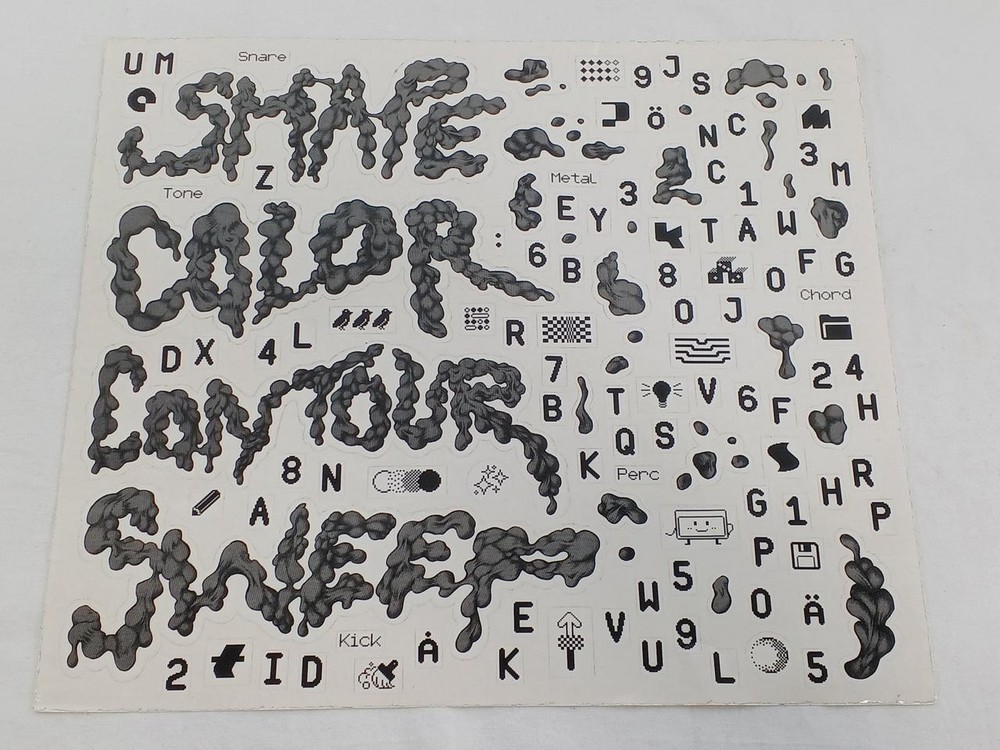 U M
Snare
9 J S
SHAPE
Ö
N C
3
Z
C
M
Tone
Metal
3
1
E Y
T A W
COLOR
6 B
8
O
F G
O J
Chord
L
R
D X 4
7
2 4
CONTOUR
B
T
V 6 F
H
Q S
8 N
K
Perc
R
H
A
G 1
P
SWEEP
P
5
W
O
Ä
E
V
9
Kick
Å
U
2
I D
K
L
5